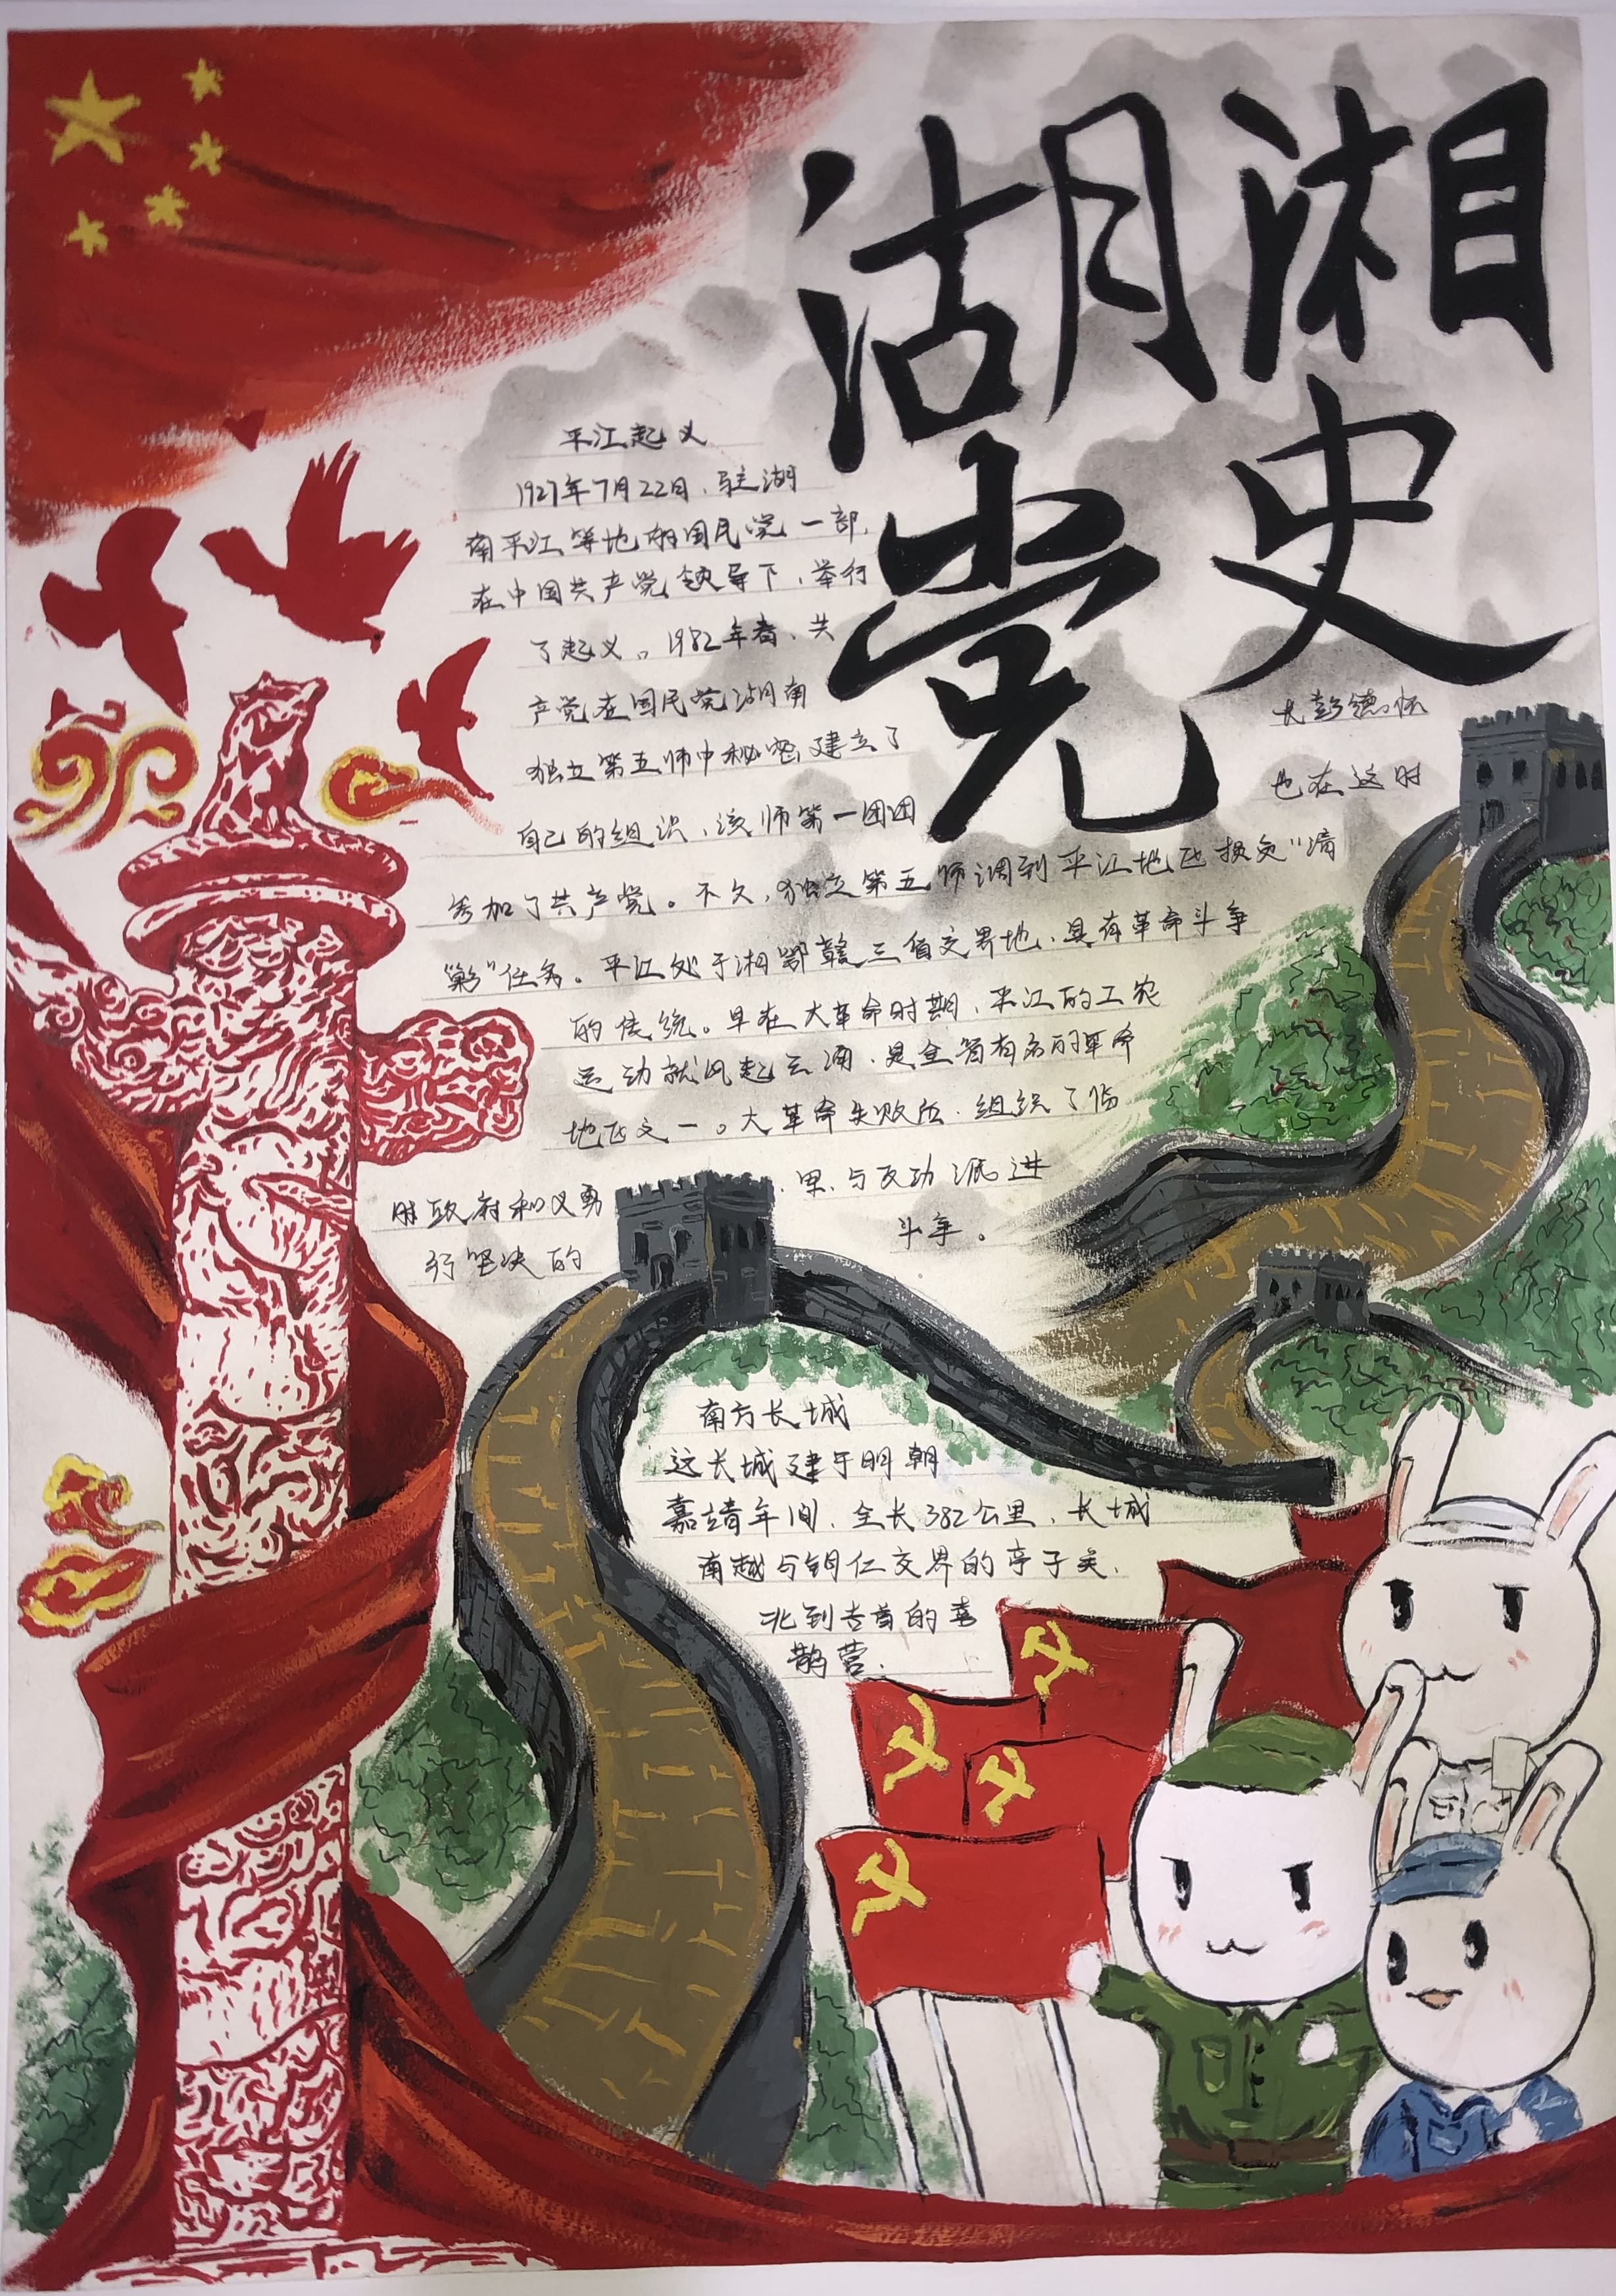 湖湘
党史
平江起义
1927年7月22日、驻湖
南平江等地的国民党一部,
在中国共产党领导下、举行
了起义。1982年春、共
产党在国民党湖南
独立第五师中秘密建立了
自己的组织、该师第一团团
长彭德怀
也在这时
参加了共产党。不久,独立第五师调到平江地区担负"清
剿"任务。平江处于湘鄂赣三省交界地、具有革命斗争
的传统。早在大革命时期、平江的工农
运动就风起云涌、是全省有名的革命
地区之一。大革命失败后、组织了临
时政府和义勇
队、与反动派进
行坚决的
斗争。
南方长城
这长城建于明朝
嘉靖年间、全长382公里、长城
南越与铜仁交界的亭子关、
北到吉首的喜
鹊营.